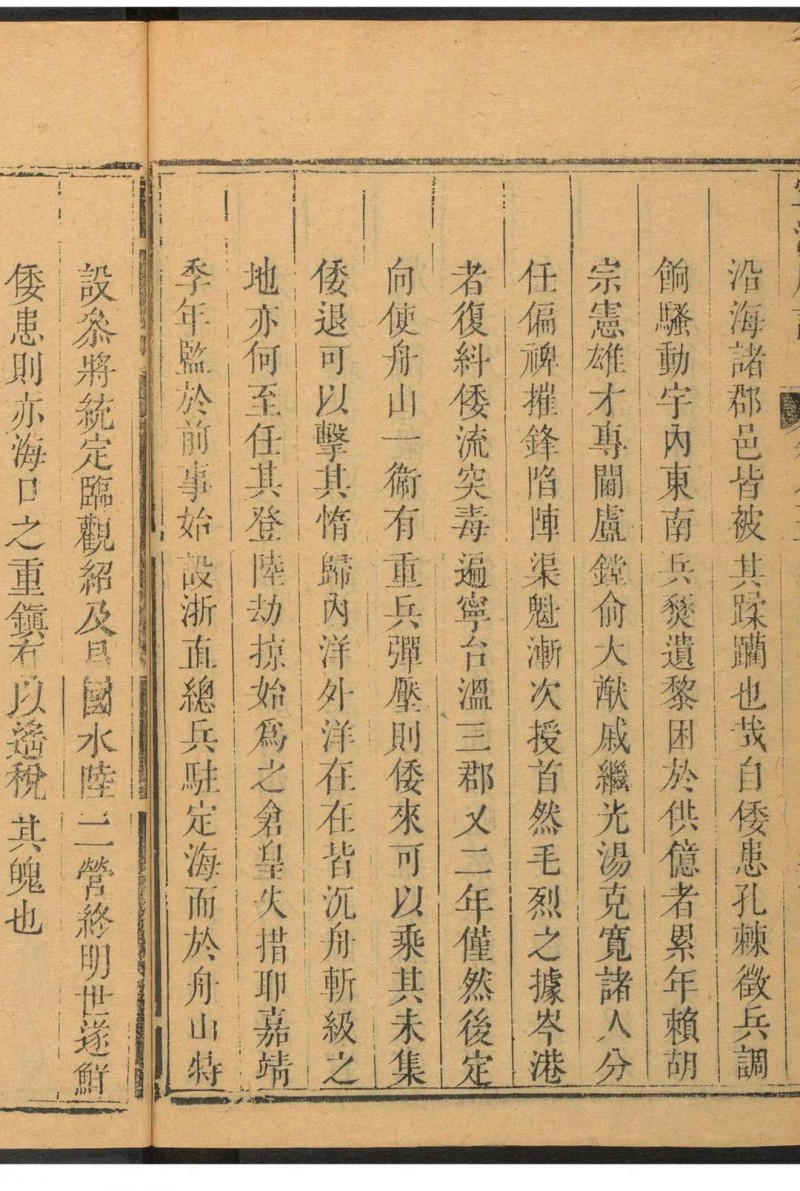 沿海諸郡邑皆被其蹂躪也哉自倭患孔棘徵兵調
餉騷動宇內東南兵燹遺黎困於供億者累年賴胡
宗憲雄才專閫盧鏜俞大猷戚繼光湯克寬諸人分
任偏裨摧鋒陷陣渠魁漸次授首然毛烈之據岑港
者復糾倭流突毒遍寧台溫三郡又二年僅然後定
向使舟山一衞有重兵彈壓則倭來可以乘其未集
倭退可以擊其惰歸內洋外洋在在皆沉舟斬級之
地亦何至任其登陸劫掠始爲之倉皇失措耶嘉靖
季年監於前事始設浙直總兵駐定海而於舟山特
設叅將統定臨觀紹及昌國水陸二營終明世遂鮮
倭患則亦海口之重鎮有以遙稅其魄也